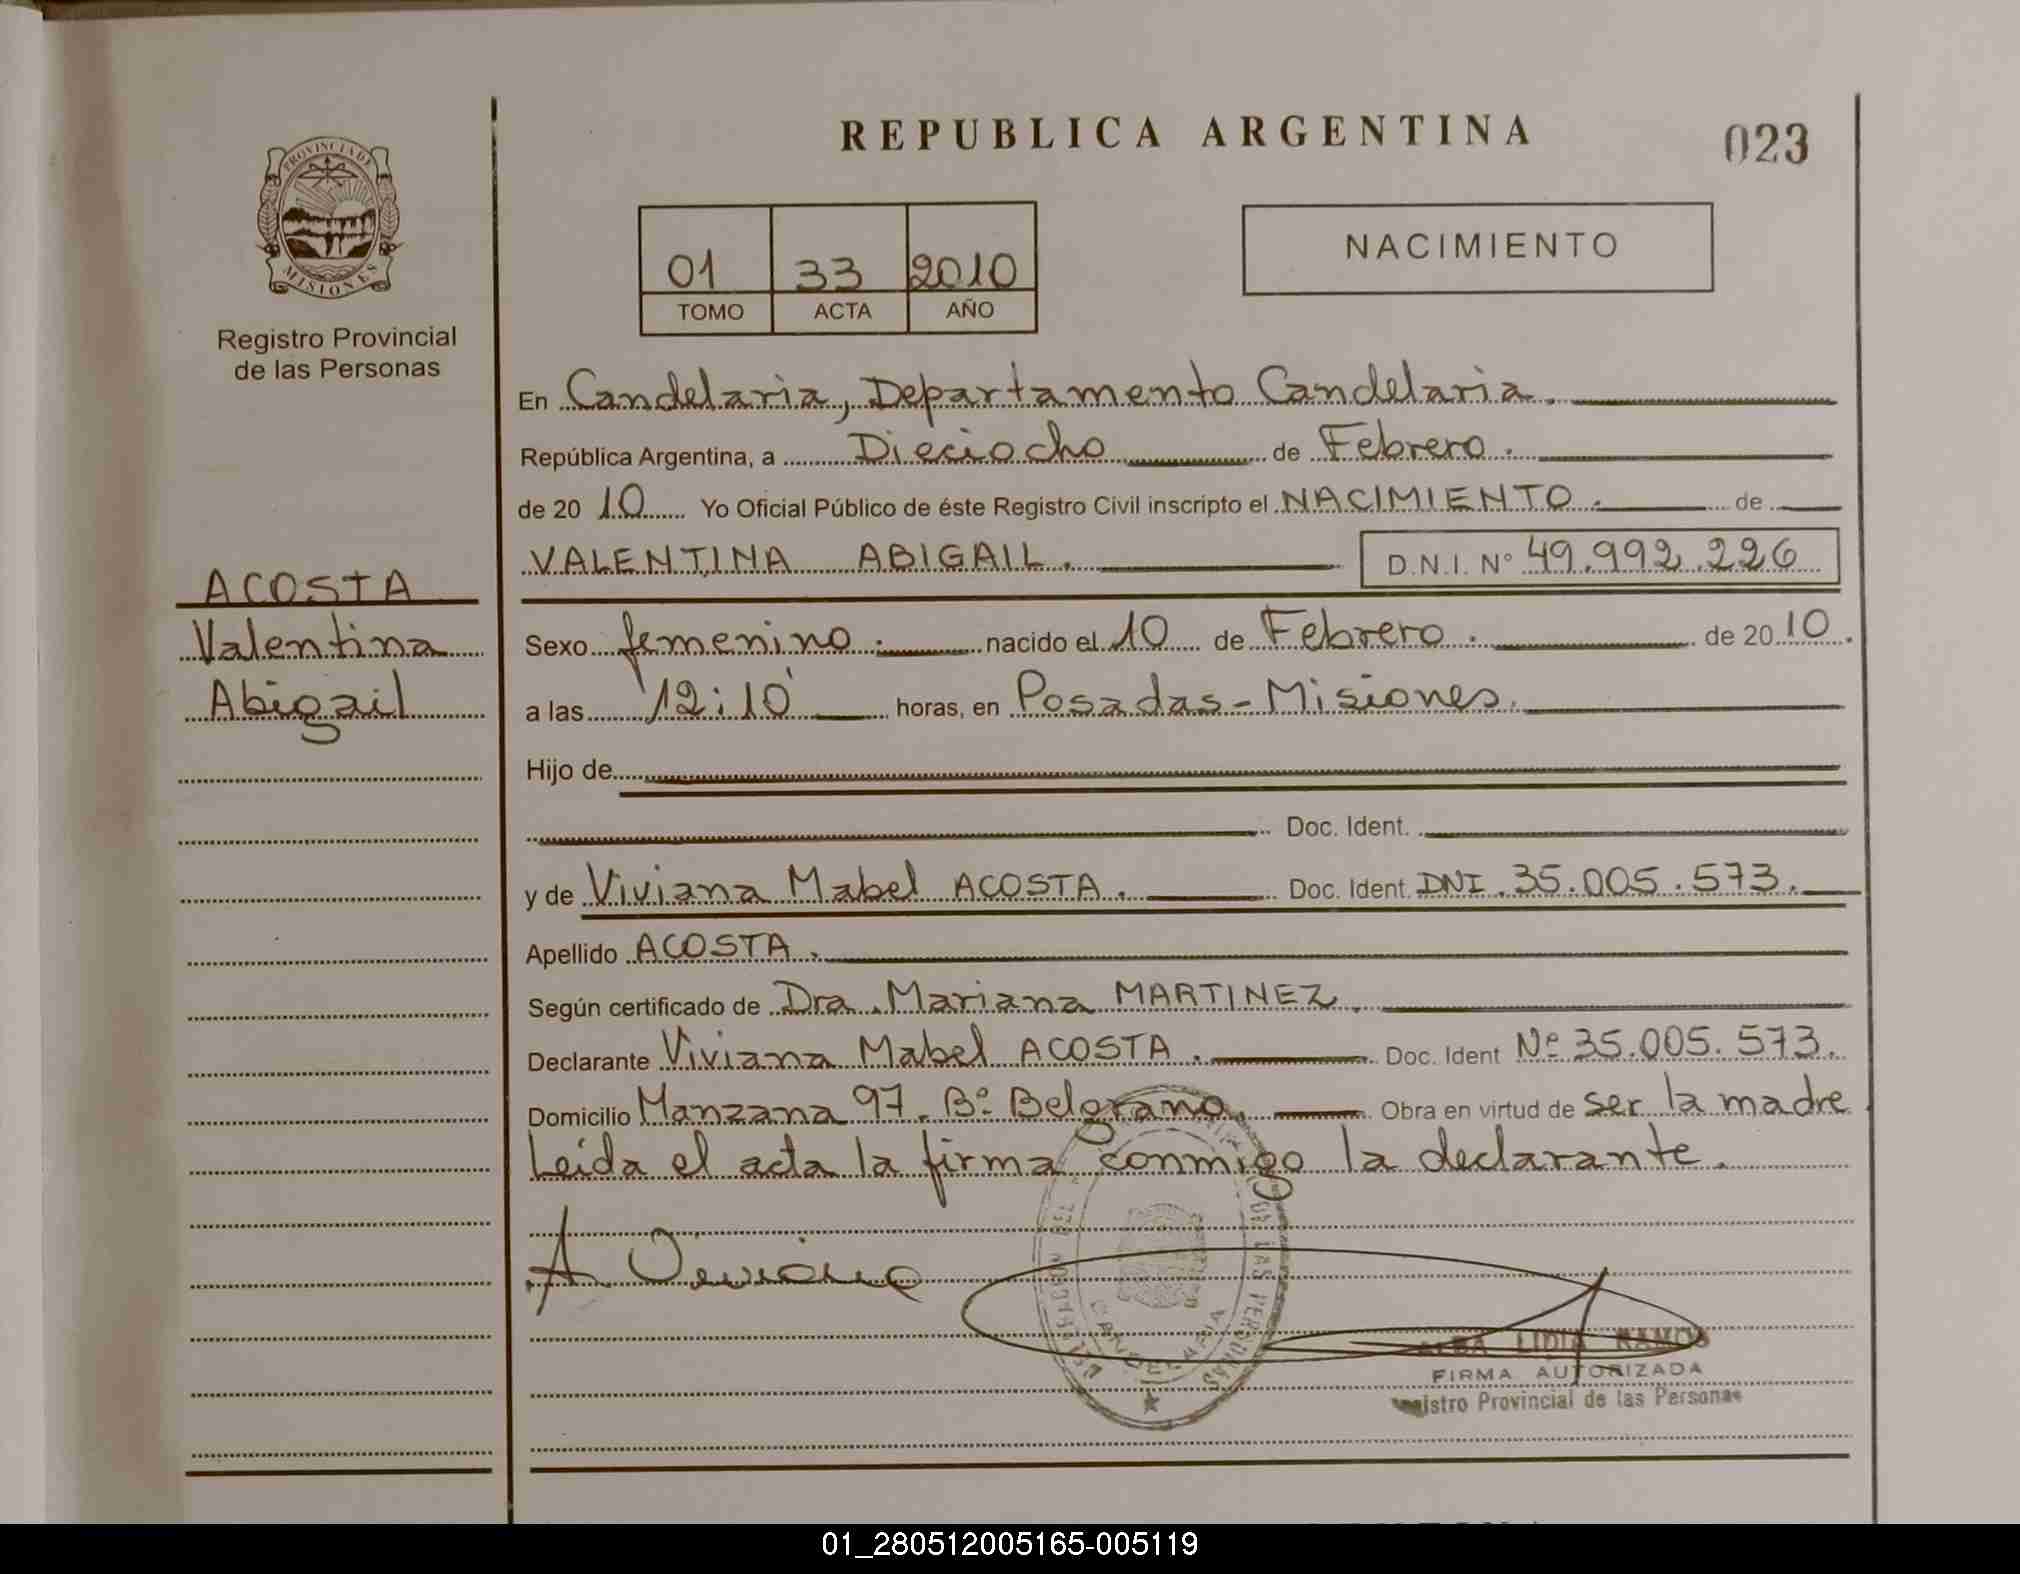 REPUBLICA ARGENTINA
023
PROVINCIA DE
MISIONES
Registro Provincial
de las Personas
01 33 2010
TOMO ACTA AÑO
NACIMIENTO
En Candelaria, Departamento Candelaria.
República Argentina, a Dieciocho de Febrero.
de 20 10 Yo Oficial Público de éste Registro Civil inscripto el NACIMIENTO. de
VALENTINA ABIGAIL. D.N.I. Nº 49.992.226
ACOSTA
Valentina
Abigail
Sexo femenino. nacido el 10 de Febrero. de 20 10.
a las 12:10 horas, en Posadas-Misiones.
Hijo de
Doc. Ident.
y de Viviana Mabel ACOSTA. Doc. Ident. DNI. 35.005.573.
Apellido ACOSTA.
Según certificado de Dra. Mariana MARTINEZ.
Declarante Viviana Mabel ACOSTA. Doc. Ident Nº 35.005.573.
Domicilio Manzana 97. Bº Belgrano. Obra en virtud de ser la madre.
Leída el acta la firma conmigo la declarante.
A Viviana
DE LAS PERSONAS
CANDELARIA
ALBA LIDIA RAMOS
FIRMA AUTORIZADA
Registro Provincial de las Personas
01_280512005165-005119